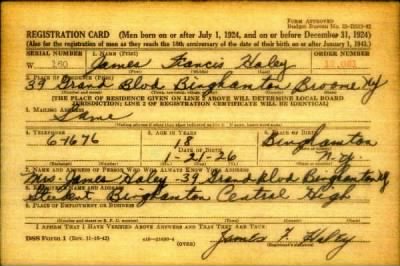 FORM APPROVED
REGISTRATION CARD (Men born on or after July 1, 1924, and on or before December 31, 1924)
(Also for the registration of men as they reach the 18th anniversary of the date of their birth on or after January 1, 1943.)
SERIAL NUMBER 1. NAME (Print) ORDER NUMBER
W 160 James Francis Haley
(First) (Middle) (Last)
2. PLACE OF RESIDENCE (Print)
39 Grand Blvd Binghamton Broome NY
[THE PLACE OF RESIDENCE GIVEN ON LINE 2 ABOVE WILL DETERMINE LOCAL BOARD
JURISDICTION; LINE 2 OF REGISTRATION CERTIFICATE WILL BE IDENTICAL]
3. MAILING ADDRESS
Same
4. TELEPHONE 5. AGE IN YEARS 6. PLACE OF BIRTH
6-1676 18 Binghamton
DATE OF BIRTH
1-21-26 N.Y.
7. NAME AND ADDRESS OF PERSON WHO WILL ALWAYS KNOW YOUR ADDRESS
Mrs. James Haley - 39 Grand Blvd Binghamton NY
8. EMPLOYER'S NAME AND ADDRESS
Student Binghamton Central High
9. PLACE OF EMPLOYMENT OR BUSINESS
I AFFIRM THAT I HAVE VERIFIED ABOVE ANSWERS AND THAT THEY ARE TRUE.
DSS Form 1 (OVER) James F. Haley